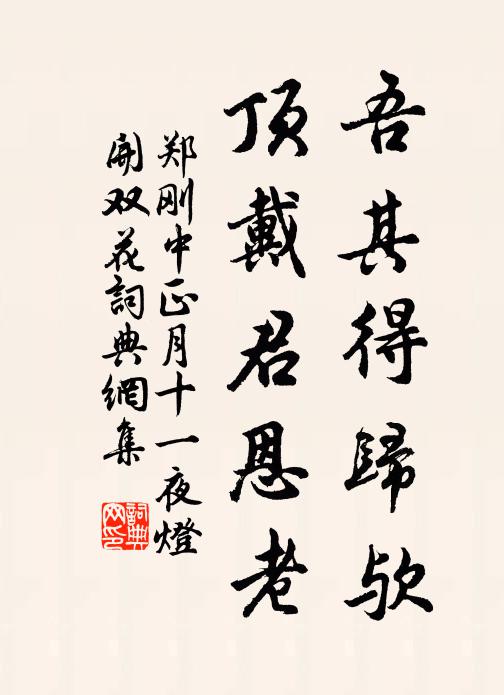 吾其得歸欤
顶戴君恩老
郑刚中正月十一夜燈
開双花詞典網集
詞典
网印